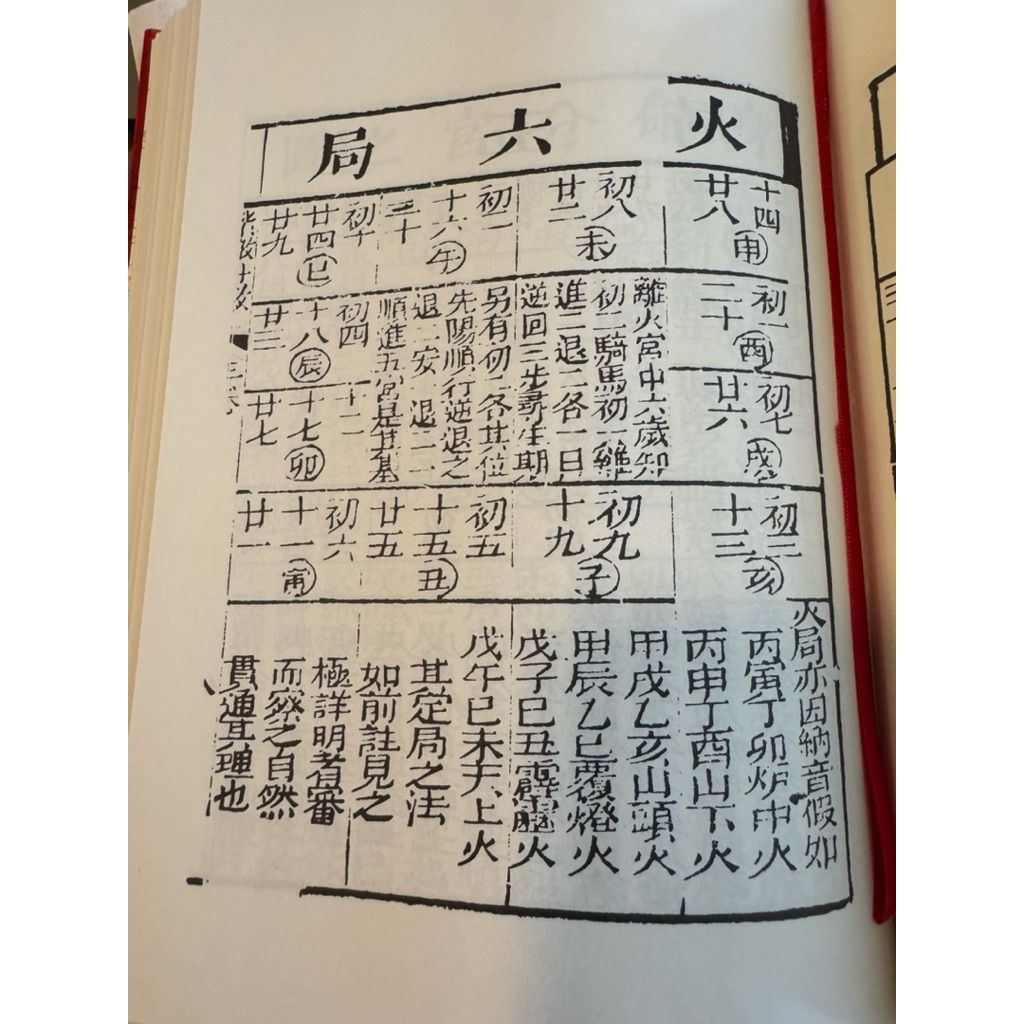 火六局
十四
廿八
申
初八
廿二
未
初二
十六
三十
午
初十
廿四
廿九
巳
初一
二十
酉
初七
廿六
戌
離火宮中六歲知
初二騎馬初一雞
進二退二各一日
逆回三步尋生期
另有初二各其位
先陽順行逆退之
退二安一退二一
順進五宮是其基
初四
十八
廿三
辰
十二
十七
廿七
卯
初三
十三
亥
初九
十九
子
初五
十五
廿五
丑
初六
十一
廿一
寅
火局亦因納音假如
丙寅丁卯炉中火
丙申丁酉山下火
甲戌乙亥山頭火
甲辰乙巳覆燈火
戊子己丑霹靂火
戊午己未天上火
其定局之法
如前註見之
極詳明者審
而察之自然
貫通其理也